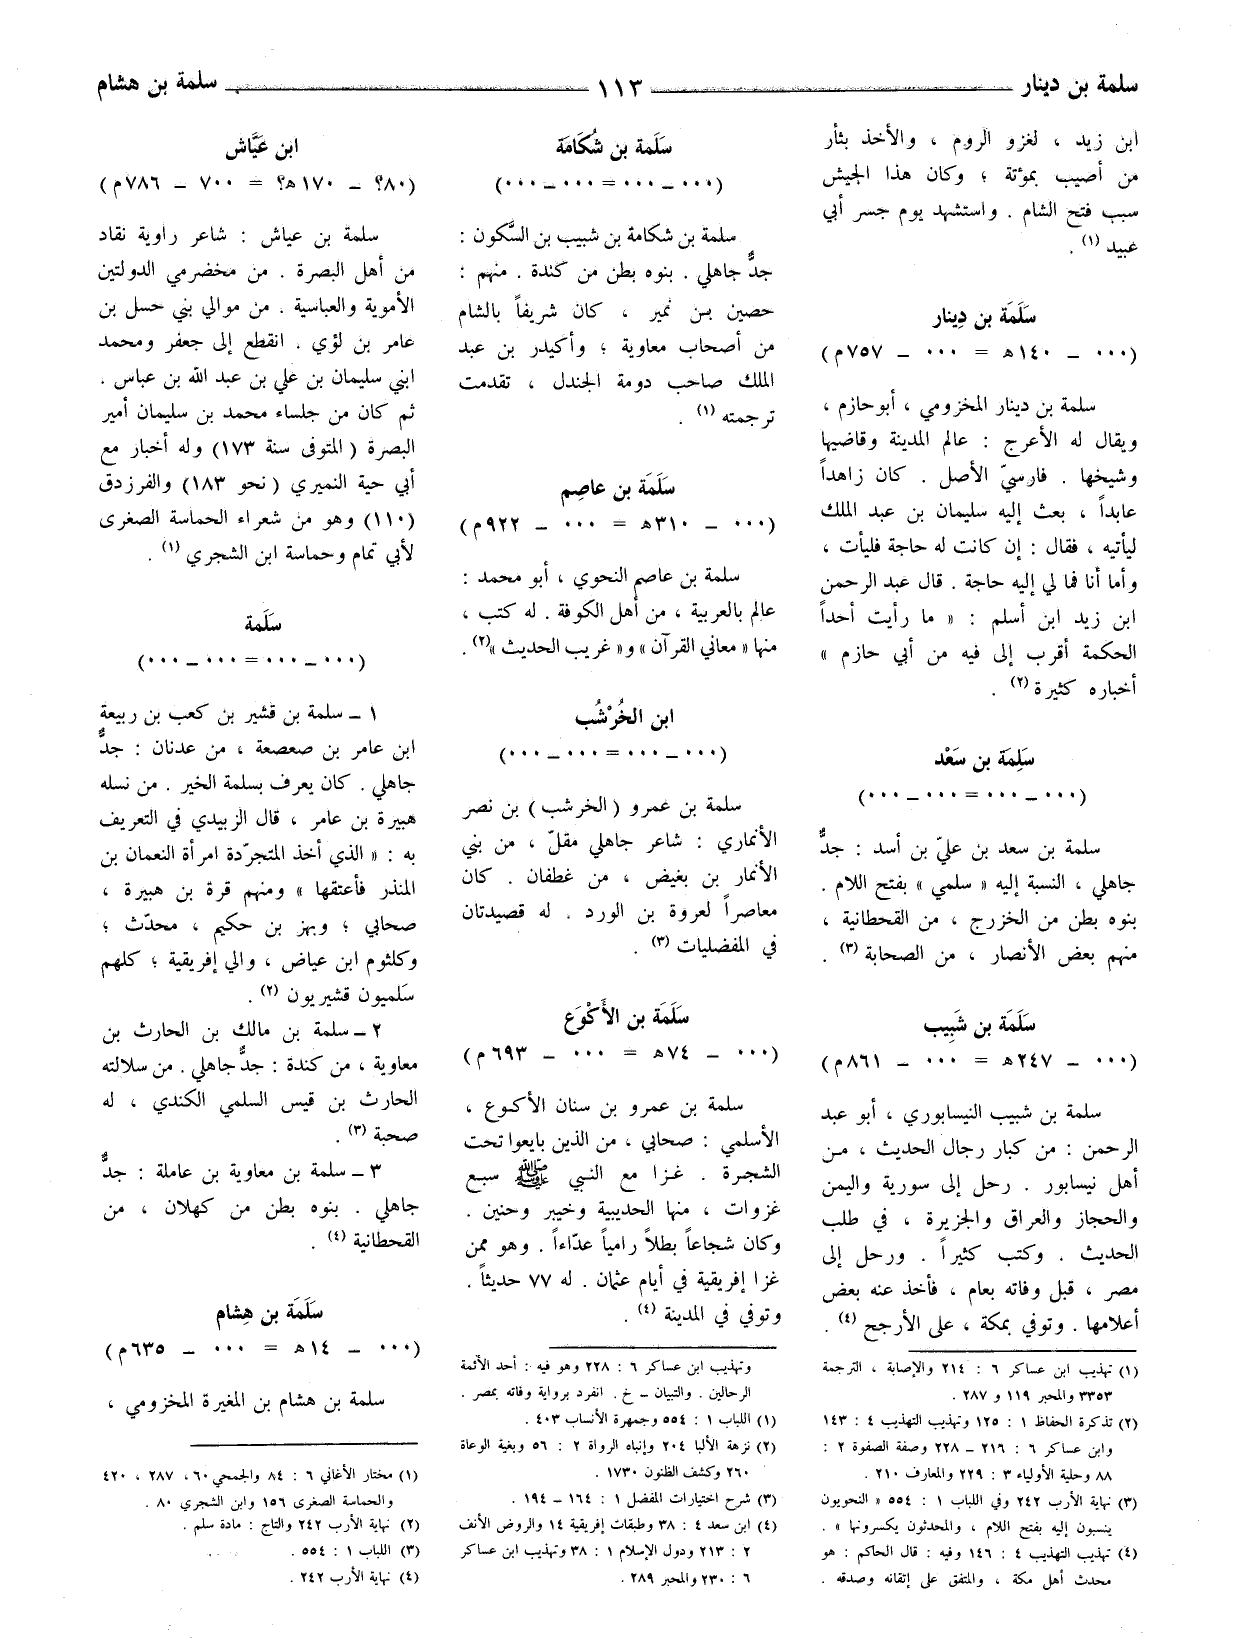 سلمة بن دينار ١١٣ سلمة بن هشام
ابن زيد ، لغزو الروم ، والأخذ بثأر
من أصيب بمؤتة ؛ وكان هذا الجيش
سبب فتح الشام . واستشهد يوم جسر أبي
عبيد (١) .
سَلَمَة بن دِينار
(٠٠٠ – ١٤٠ه = ٠٠٠ – ٧٥٧م)
سلمة بن دينار المخزومي ، أبو حازم ،
ويقال له الأعرج : عالم المدينة وقاضيها
وشيخها . فارسيّ الأصل . كان زاهداً
عابداً ، بعث إليه سليمان بن عبد الملك
ليأتيه ، فقال : إن كانت له حاجة فليأت ،
وأما أنا فما لي إليه حاجة . قال عبد الرحمن
ابن زيد ابن أسلم : « ما رأيت أحداً
الحكمة أقرب إلى فيه من أبي حازم »
أخباره كثيرة (٢) .
سَلِمة بن سَعْد
(٠٠٠ – ٠٠٠ = ٠٠٠ – ٠٠٠)
سلمة بن سعد بن عليّ بن أسد : جدٌّ
جاهلي ، النسبة إليه « سلمي » بفتح اللام .
بنوه بطن من الخزرج ، من القحطانية ،
منهم بعض الأنصار ، من الصحابة (٣) .
سَلَمَة بن شَبِيب
(٠٠٠ – ٢٤٧ه = ٠٠٠ – ٨٦١م)
سلمة بن شبيب النيسابوري ، أبو عبد
الرحمن : من كبار رجال الحديث ، من
أهل نيسابور . رحل إلى سورية واليمن
والحجاز والعراق والجزيرة ، في طلب
الحديث . وكتب كثيراً . ورحل إلى
مصر ، قبل وفاته بعام ، فأخذ عنه بعض
أعلامها . وتوفي بمكة ، على الأرجح (٤) .
(١) تهذيب ابن عساكر ٦ : ٢١٤ والإصابة ، الترجمة
٣٣٥٣ والمحبر ١١٩ و ٢٨٧ .
(٢) تذكرة الحفاظ ١ : ١٢٥ وتهذيب التهذيب ٤ : ١٤٣
وابن عساكر ٦ : ٢١٦ – ٢٢٨ وصفة الصفوة ٢ :
٨٨ وحلية الأولياء ٣ : ٢٢٩ والمعارف ٢١٠ .
(٣) نهاية الأرب ٢٤٢ وفي اللباب ١ : ٥٥٤ « النحويون
ينسبون إليه بفتح اللام ، والمحدثون يكسرونها » .
(٤) تهذيب التهذيب ٤ : ١٤٦ وفيه : قال الحاكم : هو
محدث أهل مكة ، والمتفق على إتقانه وصدقه .
سَلَمة بن شُكَامَة
(٠٠٠ – ٠٠٠ = ٠٠٠ – ٠٠٠)
سلمة بن شكامة بن شبيب بن السَّكون :
جدٌّ جاهلي . بنوه بطن من كندة . منهم :
حصين بن نمير ، كان شريفاً بالشام
من أصحاب معاوية ؛ وأكيدر بن عبد
الملك صاحب دومة الجندل ، تقدمت
ترجمته (١) .
سَلَمَة بن عاصِم
(٠٠٠ – ٣١٠ه = ٠٠٠ – ٩٢٢م)
سلمة بن عاصم النحوي ، أبو محمد :
عالم بالعربية ، من أهل الكوفة . له كتب ،
منها « معاني القرآن » و« غريب الحديث »(٢) .
ابن الخُرْشُب
(٠٠٠ – ٠٠٠ = ٠٠٠ – ٠٠٠)
سلمة بن عمرو (الخرشب) بن نصر
الأنماري : شاعر جاهلي مقلّ ، من بني
الأنمار بن بغيض ، من غطفان . كان
معاصراً لعروة بن الورد . له قصيدتان
في المفضليات (٣) .
سَلَمَة بن الأَكْوَع
(٠٠٠ – ٧٤ه = ٠٠٠ – ٦٩٣م)
سلمة بن عمرو بن سنان الأكوع ،
الأسلمي : صحابي ، من الذين بايعوا تحت
الشجرة . غزا مع النبي ﷺ سبع
غزوات ، منها الحديبية وخيبر وحنين .
وكان شجاعاً بطلاً رامياً عدّاءاً . وهو ممن
غزا إفريقية في أيام عثمان . له ٧٧ حديثاً .
وتوفي في المدينة (٤) .
وتهذيب ابن عساكر ٦ : ٢٢٨ وهو فيه : أحد الأئمة
الرحالين . والتبيان – خ . انفرد برواية وفاته بمصر .
(١) اللباب ١ : ٥٥٤ وجمهرة الأنساب ٤٠٣ .
(٢) نزهة الألبا ٢٠٤ وإنباه الرواة ٢ : ٥٦ وبغية الوعاة
٢٦٠ وكشف الظنون ١٧٣٠ .
(٣) شرح اختيارات المفضل ١ : ١٦٤ – ١٩٤ .
(٤) ابن سعد ٤ : ٣٨ وطبقات إفريقية ١٤ والروض الأنف
٢ : ٢١٣ ودول الإسلام ١ : ٣٨ وتهذيب ابن عساكر
٦ : ٢٣٠ والمحبر ٢٨٩ .
ابن عَيَّاش
(٨٠؟ – ١٧٠ه؟ = ٧٠٠ – ٧٨٦م)
سلمة بن عياش : شاعر راوية نقاد
من أهل البصرة . من مخضرمي الدولتين
الأموية والعباسية . من موالي بني حسل بن
عامر بن لؤي . انقطع إلى جعفر ومحمد
ابني سليمان بن علي بن عبد الله بن عباس .
ثم كان من جلساء محمد بن سليمان أمير
البصرة (المتوفى سنة ١٧٣) وله أخبار مع
أبي حية النميري (نحو ١٨٣) والفرزدق
(١١٠) وهو من شعراء الحماسة الصغرى
لأبي تمام وحماسة ابن الشجري (١) .
سَلَمة
(٠٠٠ – ٠٠٠ = ٠٠٠ – ٠٠٠)
١ – سلمة بن قشير بن كعب بن ربيعة
ابن عامر بن صعصعة ، من عدنان : جدٌّ
جاهلي . كان يعرف بسلمة الخير . من نسله
هبيرة بن عامر ، قال الزبيدي في التعريف
به : « الذي أخذ المتجرّدة امرأة النعمان بن
المنذر فأعتقها » ومنهم قرة بن هبيرة ،
صحابي ؛ وبهز بن حكيم ، محدّث ؛
وكلثوم ابن عياض ، والي إفريقية ؛ كلهم
سَلميون قشيريون (٢) .
٢ – سلمة بن مالك بن الحارث بن
معاوية ، من كندة : جدٌّ جاهلي . من سلالته
الحارث بن قيس السلمي الكندي ، له
صحبة (٣) .
٣ – سلمة بن معاوية بن عاملة : جدٌّ
جاهلي . بنوه بطن من كهلان ، من
القحطانية (٤) .
سَلَمَة بن هِشام
(٠٠٠ – ١٤ه = ٠٠٠ – ٦٣٥م)
سلمة بن هشام بن المغيرة المخزومي ،
(١) مختار الأغاني ٦ : ٨٤ والجمحي ٦٠، ٢٨٧ ، ٤٢٠
والحماسة الصغرى ١٥٦ وابن الشجري ٨٠ .
(٢) نهاية الأرب ٢٤٢ والتاج : مادة سلم .
(٣) اللباب ١ : ٥٥٤ .
(٤) نهاية الأرب ٢٤٢ .